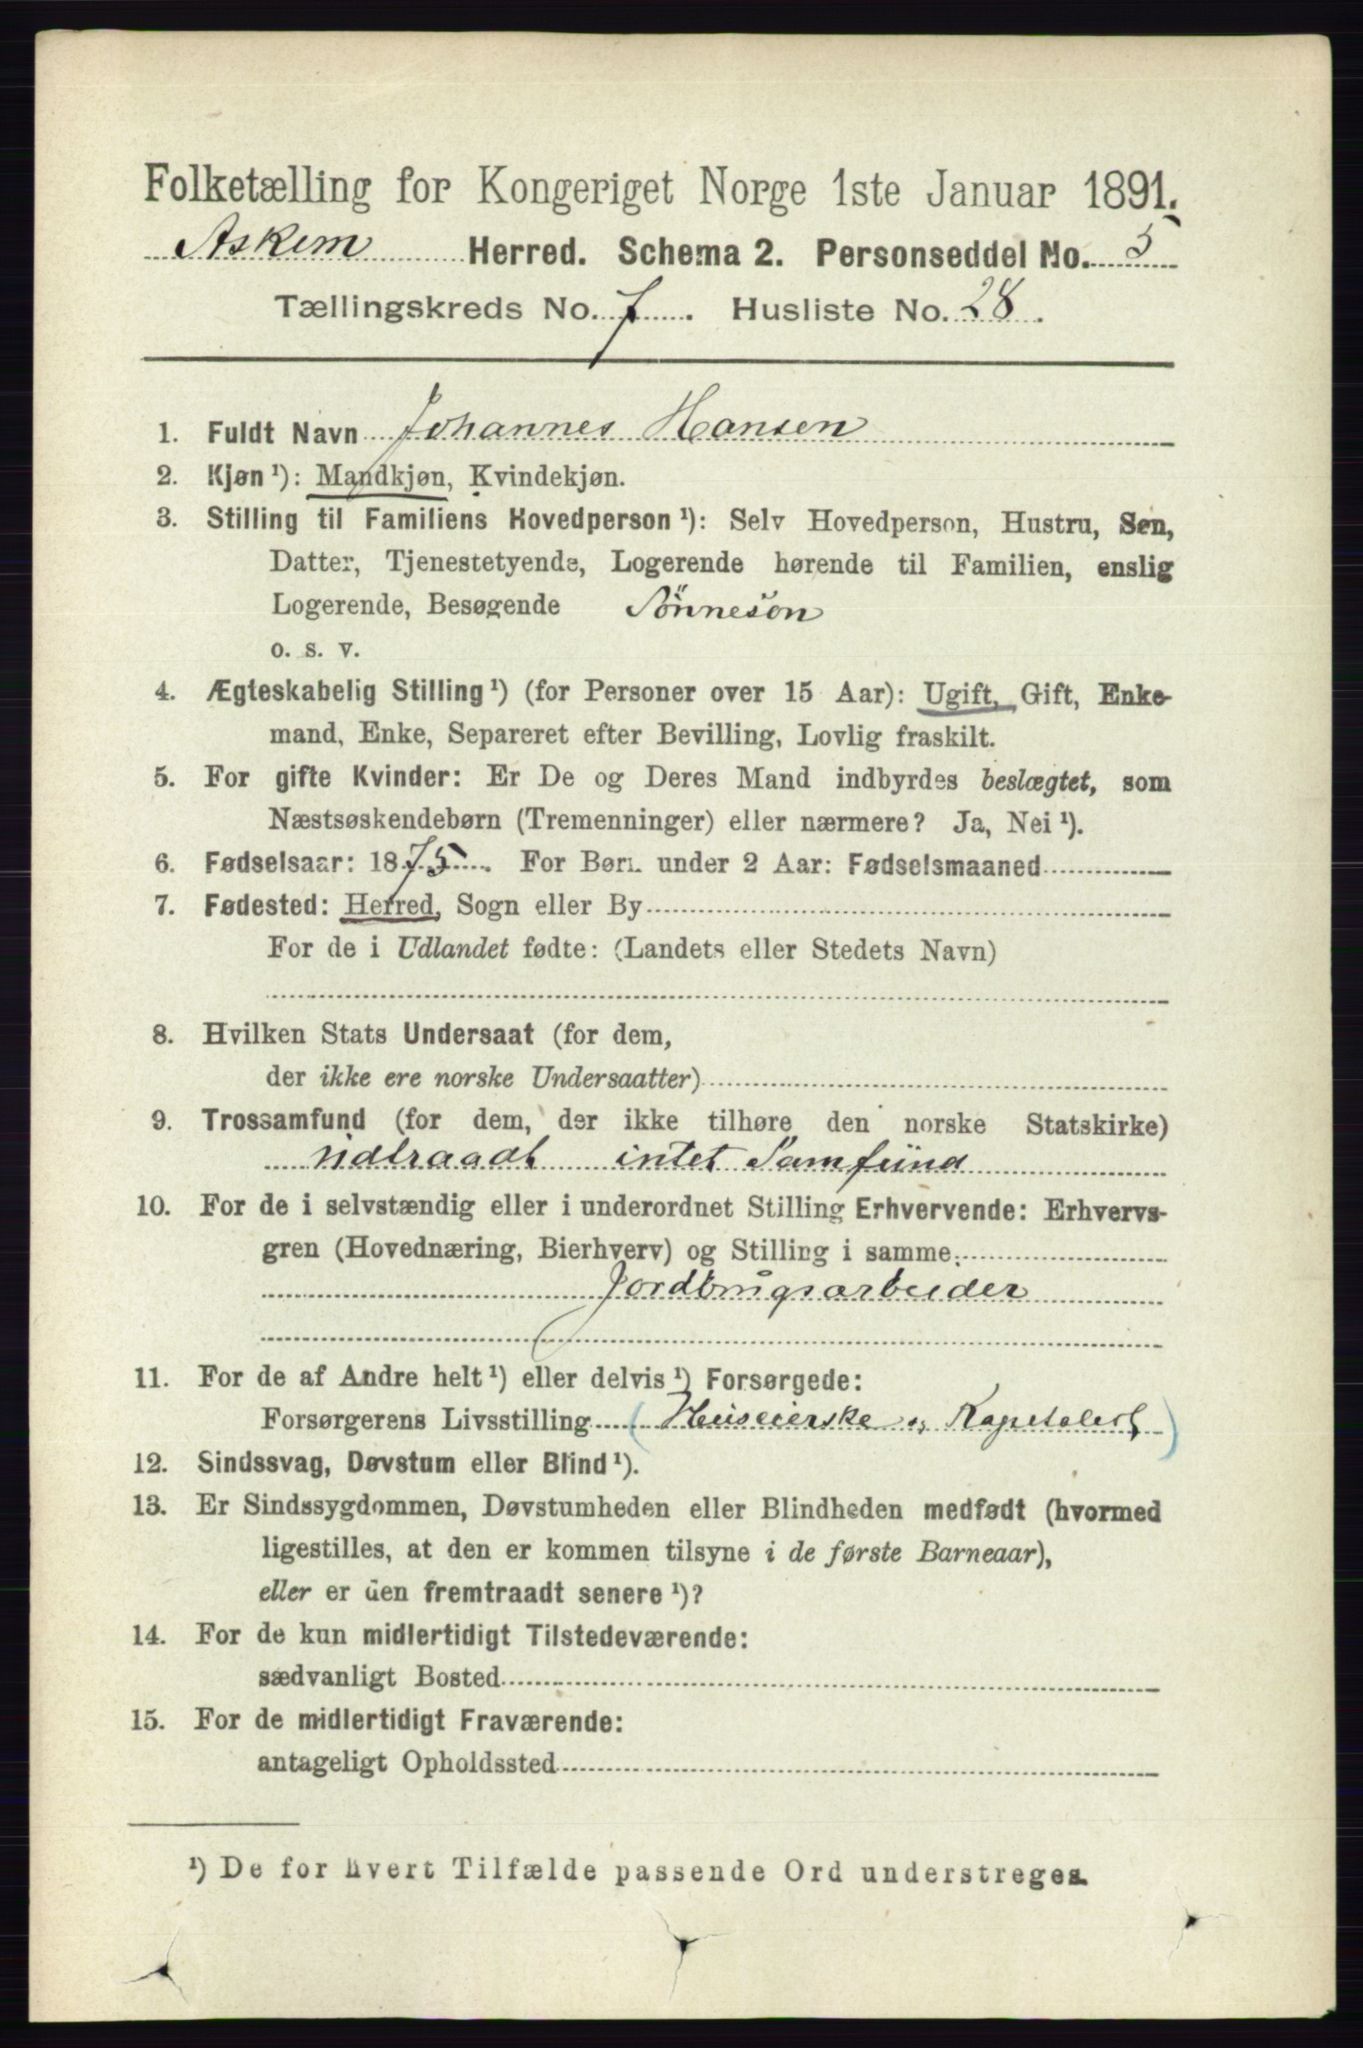 Folketælling for Kongeriget Norge 1ste Januar 1891.
Askim Herred. Schema 2. Personseddel No. 5
Tællingskreds No. 7. Husliste No. 28.
1. Fuldt Navn Johannes Hansen
2. Kjøn ¹): Mandkjøn, Kvindekjøn.
3. Stilling til Familiens Hovedperson ¹): Selv Hovedperson, Hustru, Søn,
Datter, Tjenestetyende, Logerende hørende til Familien, enslig
Logerende, Besøgende Sønnesøn
o. s. v.
4. Ægteskabelig Stilling ¹) (for Personer over 15 Aar): Ugift, Gift, Enke-
mand, Enke, Separeret efter Bevilling, Lovlig fraskilt.
5. For gifte Kvinder: Er De og Deres Mand indbyrdes beslægtet, som
Næstsøskendebørn (Tremenninger) eller nærmere? Ja, Nei ¹).
6. Fødselsaar: 1875. For Børn under 2 Aar: Fødselsmaaned
7. Fødested: Herred, Sogn eller By
For de i Udlandet fødte: (Landets eller Stedets Navn)
8. Hvilken Stats Undersaat (for dem,
der ikke ere norske Undersaatter)
9. Trossamfund (for dem, der ikke tilhøre den norske Statskirke)
Udtraadt intet Samfund
10. For de i selvstændig eller i underordnet Stilling Erhvervende: Erhvervs-
gren (Hovednæring, Bierhverv) og Stilling i samme.
Jordbrugsarbeider
11. For de af Andre helt ¹) eller delvis ¹) Forsørgede:
Forsørgerens Livsstilling (Huseierske og Kapitalist)
12. Sindssvag, Døvstum eller Blind ¹).
13. Er Sindssygdommen, Døvstumheden eller Blindheden medfødt (hvormed
ligestilles, at den er kommen tilsyne i de første Barneaar),
eller er den fremtraadt senere ¹)?
14. For de kun midlertidigt Tilstedeværende:
sædvanligt Bosted
15. For de midlertidigt Fraværende:
antageligt Opholdssted
¹) De for hvert Tilfælde passende Ord understreges.